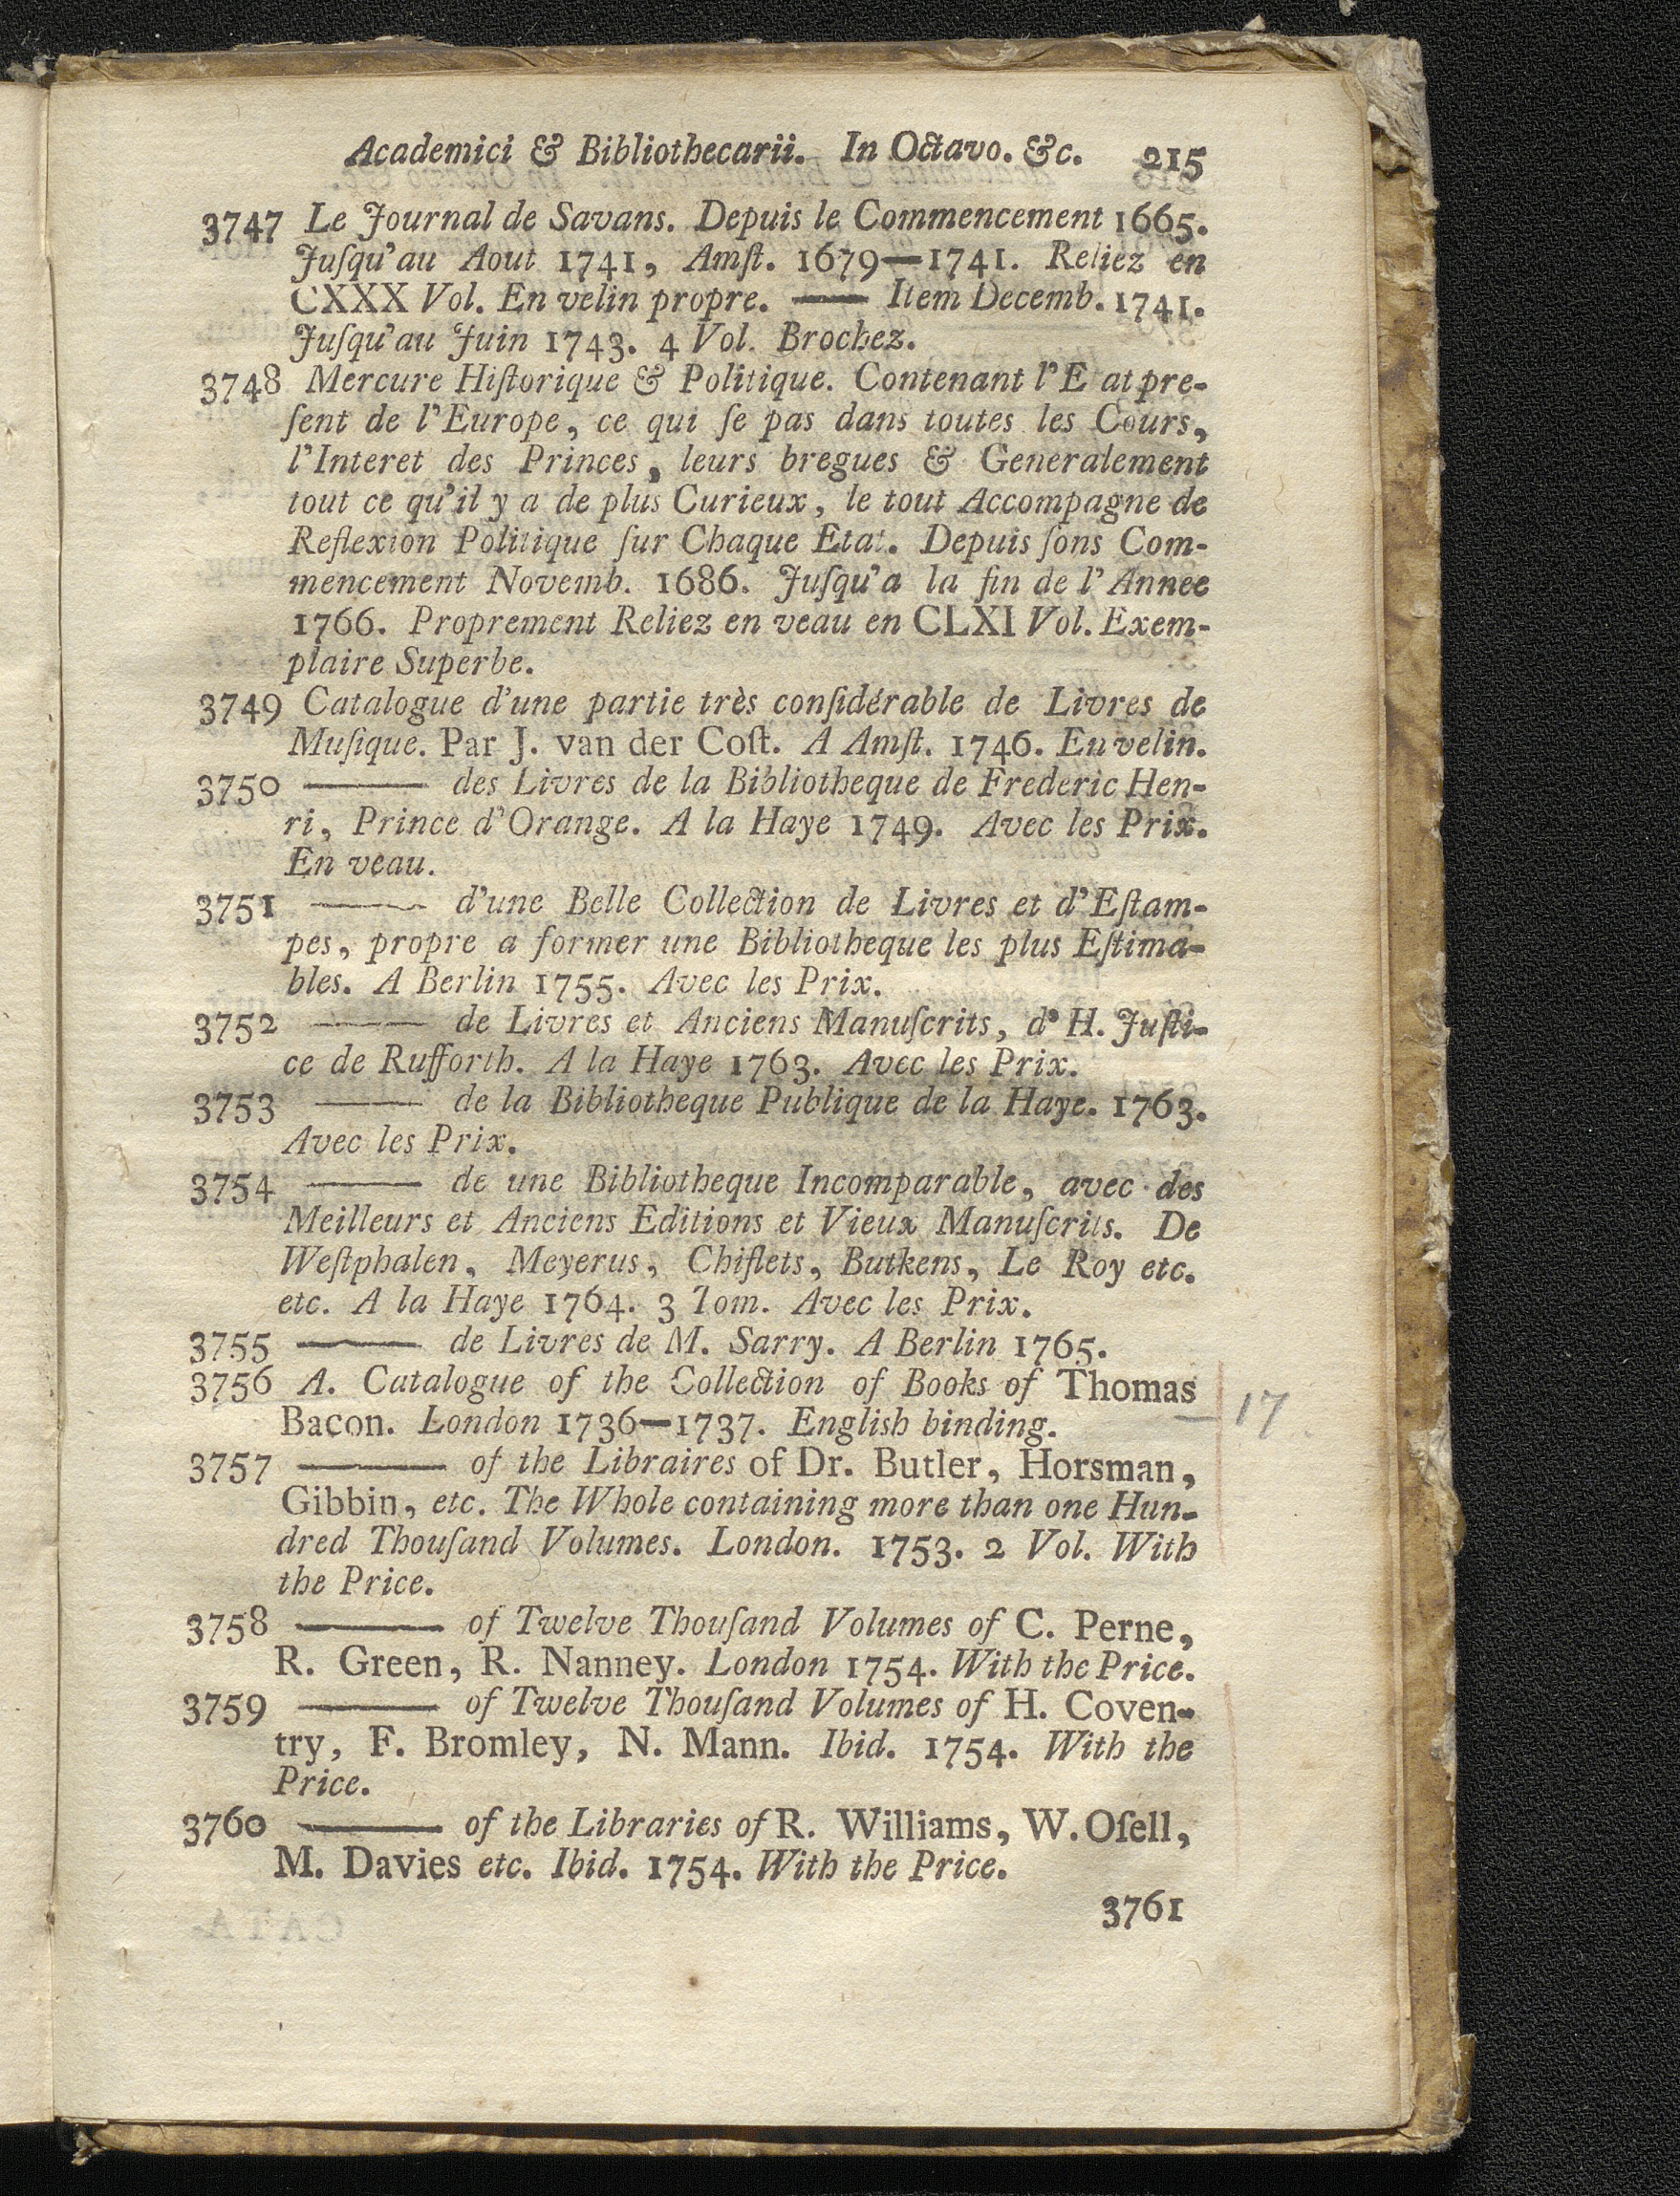 Academici & Bibliothecarii. In Octavo. &c. 215
3747 Le Journal de Savans. Depuis le Commencement 1665.
Juſqu'au Aout 1741, Amſt. 1679—1741. Reliez en
CXXX Vol. En velin propre. —— Item Decemb. 1741.
Juſqu'au Juin 1743. 4 Vol. Brochez.
3748 Mercure Hiſtorique & Politique. Contenant l'E at pre-
ſent de l'Europe, ce qui ſe pas dans toutes les Cours,
l'Interet des Princes, leurs bregues & Generalement
tout ce qu'il y a de plus Curieux, le tout Accompagne de
Reflexion Politique ſur Chaque Etat. Depuis ſons Com-
mencement Novemb. 1686. Juſqu'a la fin de l'Annee
1766. Proprement Reliez en veau en CLXI Vol. Exem-
plaire Superbe.
3749 Catalogue d'une partie très conſidérable de Livres de
Muſique. Par J. van der Coſt. A Amſt. 1746. En velin.
3750 ——— des Livres de la Bibliotheque de Frederic Hen-
ri, Prince d'Orange. A la Haye 1749. Avec les Prix.
En veau.
3751 ——— d'une Belle Collection de Livres et d'Eſtam-
pes, propre a former une Bibliotheque les plus Eſtima-
bles. A Berlin 1755. Avec les Prix.
3752 ——— de Livres et Anciens Manuſcrits, d' H. Juſti-
ce de Rufforth. A la Haye 1763. Avec les Prix.
3753 ——— de la Bibliotheque Publique de la Haye. 1763.
Avec les Prix.
3754 ——— de une Bibliotheque Incomparable, avec des
Meilleurs et Anciens Editions et Vieux Manuſcrits. De
Weſtphalen, Meyerus, Chiflets, Butkens, Le Roy etc.
etc. A la Haye 1764. 3 Tom. Avec les Prix.
3755 ——— de Livres de M. Sarry. A Berlin 1765.
3756 A. Catalogue of the Collection of Books of Thomas
Bacon. London 1736—1737. English binding. — 17
3757 ——— of the Libraires of Dr. Butler, Horsman,
Gibbin, etc. The Whole containing more than one Hun-
dred Thouſand Volumes. London. 1753. 2 Vol. With
the Price.
3758 ——— of Twelve Thouſand Volumes of C. Perne,
R. Green, R. Nanney. London 1754. With the Price.
3759 ——— of Twelve Thouſand Volumes of H. Coven-
try, F. Bromley, N. Mann. Ibid. 1754. With the
Price.
3760 ——— of the Libraries of R. Williams, W. Oſell,
M. Davies etc. Ibid. 1754. With the Price.
3761